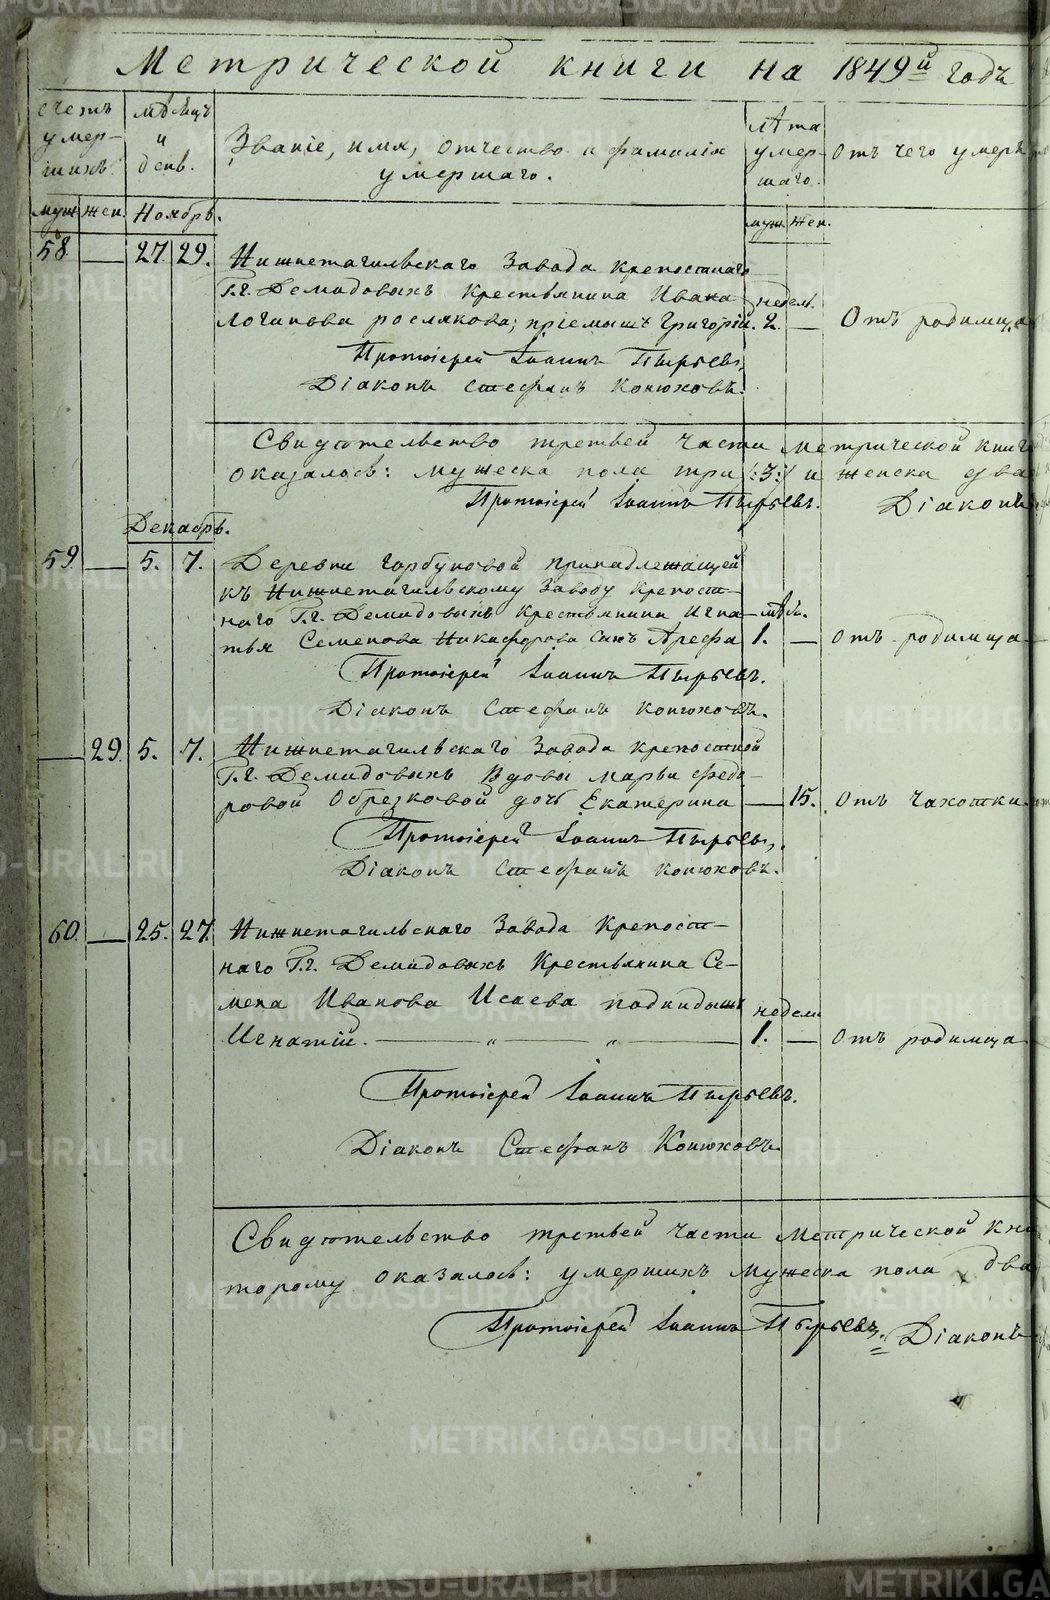 Метрической книги на 1849й годъ
счетъ умер- шихъ.
мѣсяцъ и день.
Званіе, имя, отчество и фамилія умершаго.
лѣта умер- шаго.
Отъ чего умеръ
муж жен. Ноябрь. муж жен.
58 — 27 29. Нижнетагильскаго Завода крепостнаго
Г.г. Демидовыхъ крестьянина Ивана недѣль.
Логинова рослякова; пріемышъ Григорій. 2. — Отъ родимца
Протоіерей Іоаннъ Пырьевъ,
Діаконъ Стефанъ Конюховъ.
Свидѣтельство третьей части метрической книг
оказалось: мужеска пола три /:3:/ и женска два
Протоіерей Іоаннъ Пырьевъ. Діаконъ
Декабрь.
59. — 5. 7. Деревни Горбуновой принадлежащей
къ Нижнетагильскому Заводу крепост-
наго Г.г. Демидовыхъ крестьянина Игна-
тья Семенова Никифорова сынъ Арефа 1. — Отъ родимца
Протоіерей Іоаннъ Пырьевъ.
Діаконъ Стефанъ Конюховъ.
— 29. 5. 7. Нижнетагильскаго Завода крепостной
Г.г. Демидовыхъ Вдовы Марьи Федо-
ровой Обрезковой дочь Екатерина — 15. Отъ чахотки
Протоіерей Іоаннъ Пырьевъ,
Діаконъ Стефанъ Конюховъ.
60. — 25. 27. Нижнетагильскаго Завода Крепост-
наго Г.г. Демидовыхъ Крестьянина Се-
мена Иванова Исаева подкидышъ недели
Игнатій. — „ — „ — 1. — Отъ родимца
Протоіерей Іоаннъ Пырьевъ.
Діаконъ Стефанъ Конюховъ.
Свидѣтельство третьей части Метрической кни
торому оказалось: умершихъ мужеска пола два
Протоіерей Іоаннъ Пырьевъ. Діаконъ
METRIKI.GASO-URAL.RU